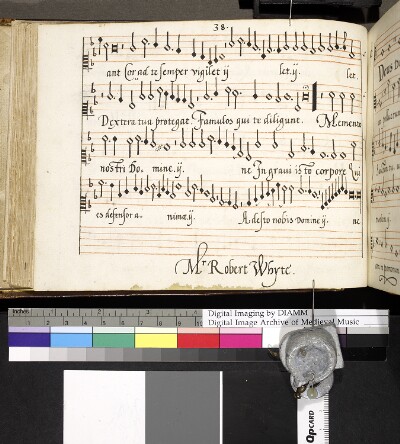 38.
ant Cor ad te semper vigilet ij let. ij. let.
Dextera tua protegat. Famulos qui te diligunt. Memento
nostri Do. mine. ij. ne In graui isto corpore Qui
es defensor a. nimæ. ij. Adesto nobis Domine. ij. ne
Mr Robert Whyte.
inches 1 2
Digital Imaging by DIAMM
Digital Image Archive of Medieval Music
QPCARD